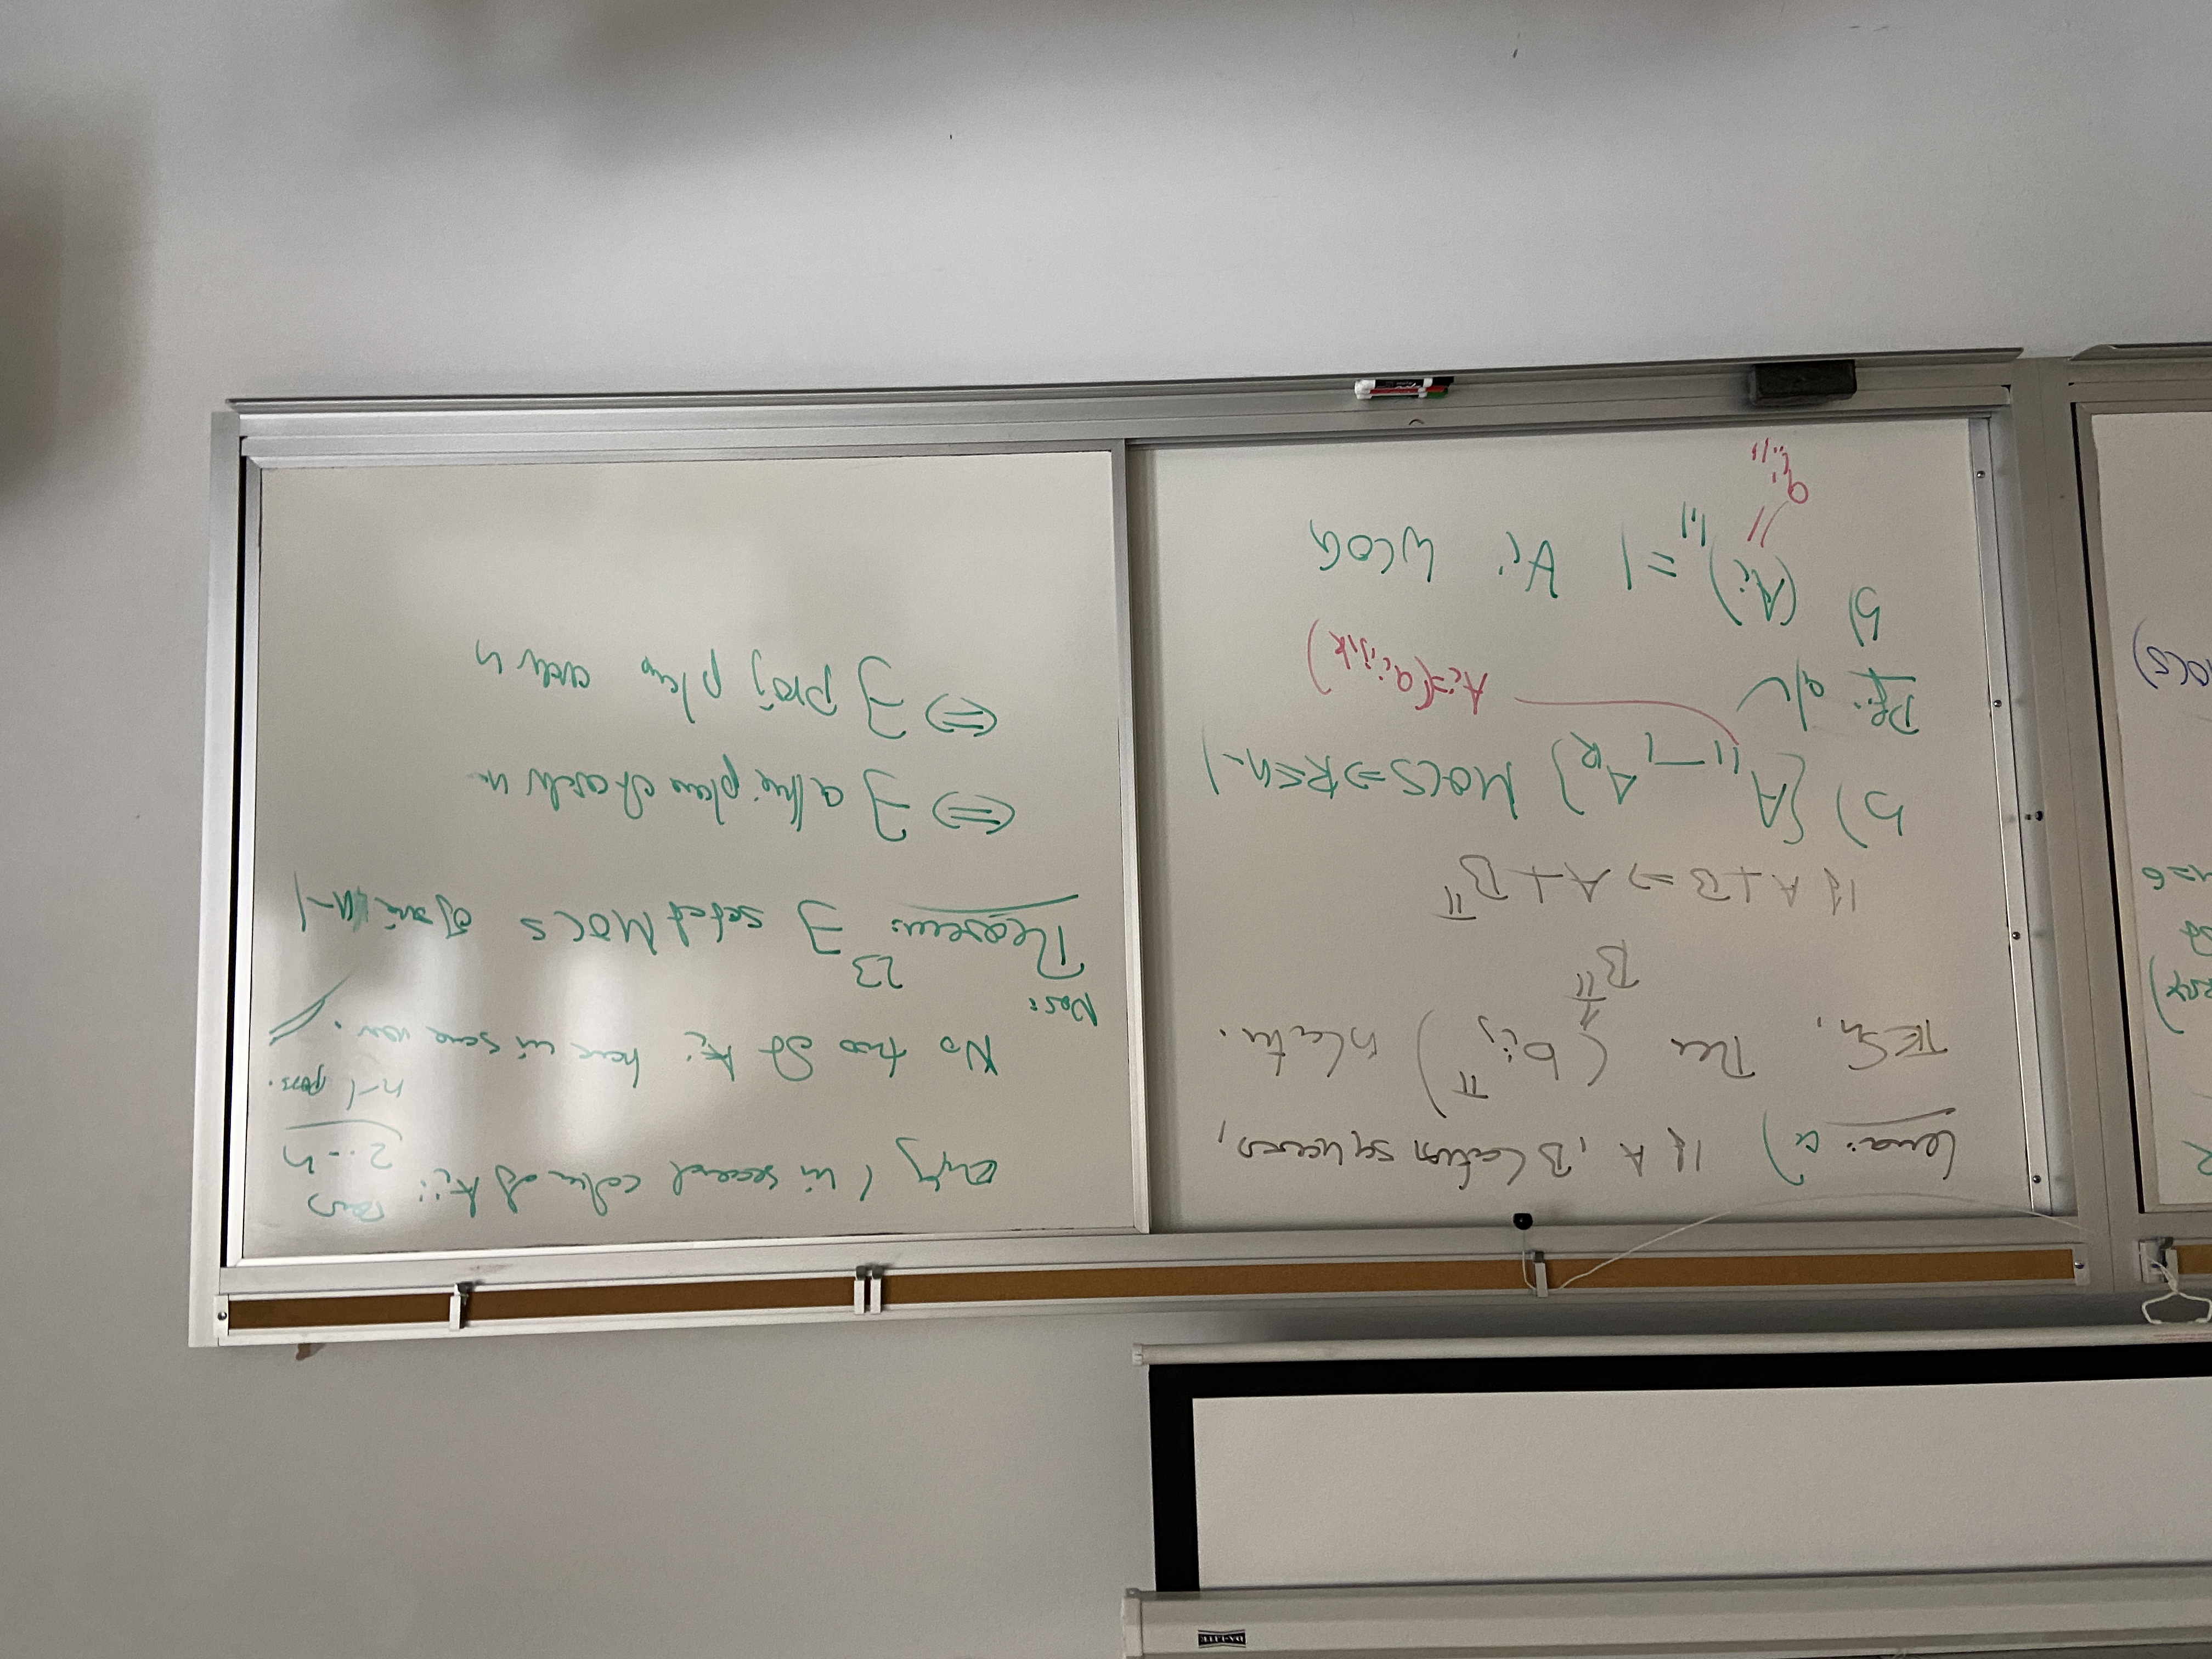 Lemma: a) If A, B Latin squares,
π∈Sₙ, then (bᵢⱼ^π) is Latin.
B^π
If A⊥B ⇒ A⊥B^π
b) {A₁, –, A_R} MOLS ⇒ R≤n-1
Pf: a) ✓
Aᵢ=(aᵢ,ⱼ,ₖ)
b) (Aᵢ)₁,₁ = 1 ∀i WLOG
aᵢ,₁,₁
entry 1 in second column of Aᵢ: row 2..n
n-1 poss.
No two of Aᵢ have in same row.
Theorem: ∃ set of MOLS of size n-1
23
⇔ ∃ affine plane of order n
⇔ ∃ proj plane order n
n=6
DA-LITE